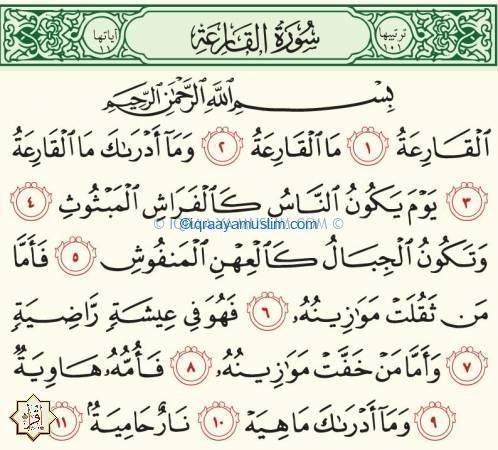 ترتيبها ١٠١ سُورَةُ القَارِعَةِ آياتها ١١
بِسْمِ ٱللَّهِ ٱلرَّحْمَٰنِ ٱلرَّحِيمِ
ٱلْقَارِعَةُ ١ مَا ٱلْقَارِعَةُ ٢ وَمَآ أَدْرَىٰكَ مَا ٱلْقَارِعَةُ
٣ يَوْمَ يَكُونُ ٱلنَّاسُ كَٱلْفَرَاشِ ٱلْمَبْثُوثِ ٤
© iqraayamuslim.com ©
وَتَكُونُ ٱلْجِبَالُ كَٱلْعِهْنِ ٱلْمَنفُوشِ ٥ فَأَمَّا
مَن ثَقُلَتْ مَوَٰزِينُهُۥ ٦ فَهُوَ فِى عِيشَةٍ رَّاضِيَةٍ
٧ وَأَمَّا مَنْ خَفَّتْ مَوَٰزِينُهُۥ ٨ فَأُمُّهُۥ هَاوِيَةٌ
٩ وَمَآ أَدْرَىٰكَ مَا هِيَهْ ١٠ نَارٌ حَامِيَةٌۢ ١١